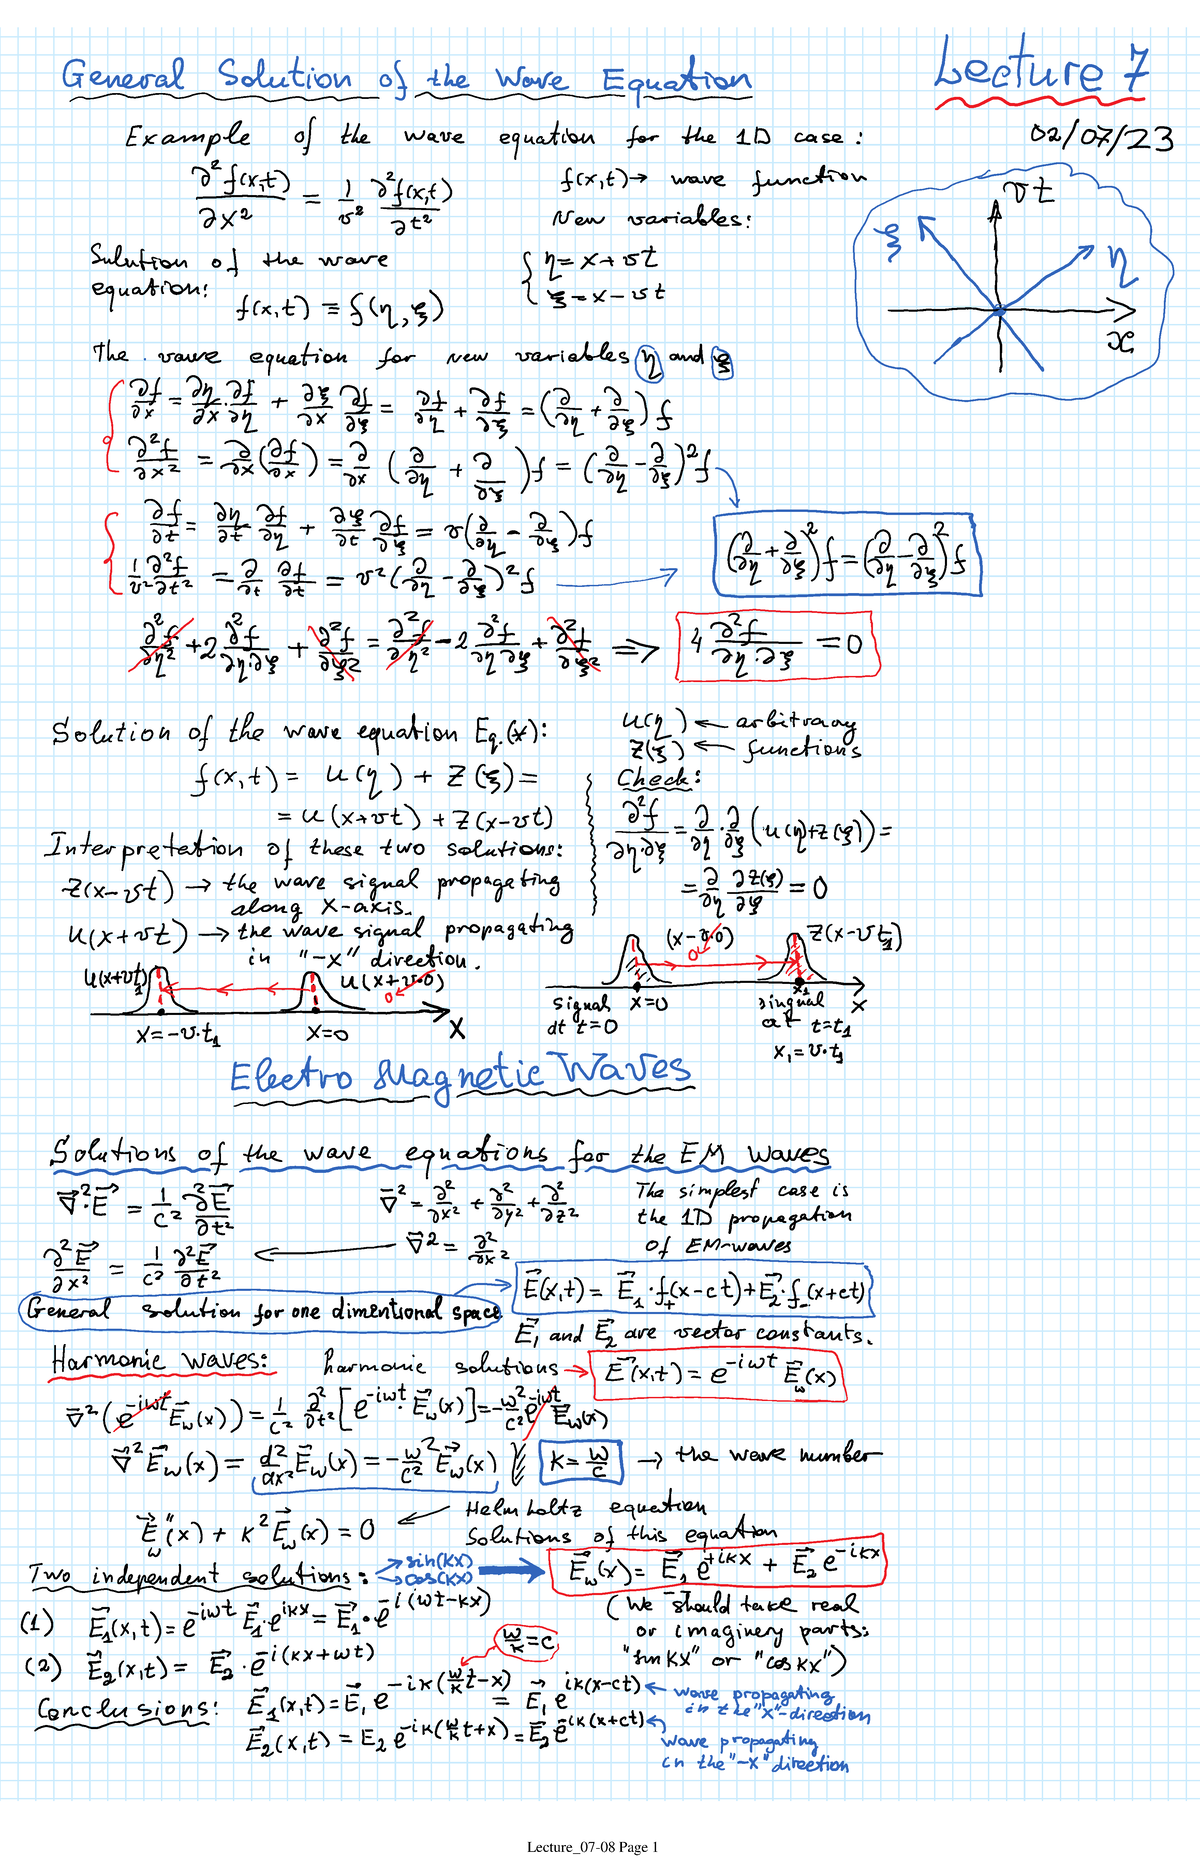 General Solution of the Wave Equation
Lecture 7
02/07/23
Example of the wave equation for the 1D case:
∂²f(x,t)/∂x² = 1/v² ∂²f(x,t)/∂t²
f(x,t) → wave function
New variables:
Solution of the wave equation:
f(x,t) ≡ f(η,ξ)
{ η = x + vt
ξ = x - vt
vt
ξ
η
x
The wave equation for new variables η and ξ
∂f/∂x = ∂η/∂x · ∂f/∂η + ∂ξ/∂x ∂f/∂ξ = ∂f/∂η + ∂f/∂ξ = (∂/∂η + ∂/∂ξ) f
∂²f/∂x² = ∂/∂x (∂f/∂x) = ∂/∂x (∂/∂η + ∂/∂ξ) f = (∂/∂η - ∂/∂ξ)² f
∂f/∂t = ∂η/∂t ∂f/∂η + ∂ξ/∂t ∂f/∂ξ = v(∂/∂η - ∂/∂ξ) f
1/v² ∂²f/∂t² = ∂/∂t ∂f/∂t = v²(∂/∂η - ∂/∂ξ)² f
(∂/∂η + ∂/∂ξ)² f = (∂/∂η - ∂/∂ξ)² f
∂²f/∂η² + 2 ∂²f/∂η·∂ξ + ∂²f/∂ξ² = ∂²f/∂η² - 2 ∂²f/∂η ∂ξ + ∂²f/∂ξ² ⟹ 4 ∂²f/∂η·∂ξ = 0
Solution of the wave equation Eq.(*):
f(x,t) = u(η) + Z(ξ) =
= u(x+vt) + Z(x-vt)
u(η) ← arbitrary
Z(ξ) ← functions
Check:
∂²f/∂η·∂ξ = ∂/∂η · ∂/∂ξ (u(η)+Z(ξ)) =
= ∂/∂η ∂Z(ξ)/∂ξ = 0
Interpretation of these two solutions:
Z(x-vt) → the wave signal propagating
along x-axis.
u(x+vt) → the wave signal propagating
in "-x" direction.
u(x+vt₁)
u(x+v·0)
0
x=-v·t₁
x=0
X
(x-v·0)
0
Z(x-vt₁)
signal
at t=0
x=0
x₁
singnal
at t=t₁
x₁=v·t₁
x
Electro Magnetic Waves
Solutions of the wave equations for the EM waves
∇²·E = 1/c² ∂²E/∂t²
∇² = ∂²/∂x² + ∂²/∂y² + ∂²/∂z²
The simplest case is
the 1D propagation
of EM-waves
∂²E/∂x² = 1/c² ∂²E/∂t² ← ∇² = ∂²/∂x²
General solution for one dimentional space
E(x,t) = E₁·f₊(x-ct)+E₂·f₋(x+ct)
E₁ and E₂ are vector constants.
Harmonic waves: harmonic solutions → E(x,t) = e^{-iωt} E_ω(x)
∇²(e^{-iωt} E_ω(x)) = 1/c² ∂²/∂t² [e^{-iωt}·E_ω(x)] = -ω²/c² e^{-iωt} E_ω(x)
∇² E_ω(x) = d²/dx² E_ω(x) = -ω²/c² E_ω(x)
K = ω/c → the wave number
E_ω''(x) + K² E_ω(x) = 0 ← Helmholtz equation
Solutions of this equation
Two independent solutions: → sin(kx)
→ cos(kx)
E_ω(x) = E₁ e^{+ikx} + E₂ e^{-ikx}
(1) E₁(x,t) = e^{-iωt} E₁·e^{ikx} = E₁·e^{-i(ωt-kx)}
(We should take real
or imaginery parts:
"sin kx" or "cos kx")
(2) E₂(x,t) = E₂·e^{-i(kx+ωt)}
ω/k = c
Conclusions: E₁(x,t) = E₁ e^{-ik(ω/k t-x)} = E₁ e^{ik(x-ct)} ← wave propagating
in the "x"-direction
E₂(x,t) = E₂ e^{-ik(ω/k t+x)} = E₂ e^{-ik(x+ct)} ← wave propagating
in the "-x" direction
Lecture_07-08 Page 1